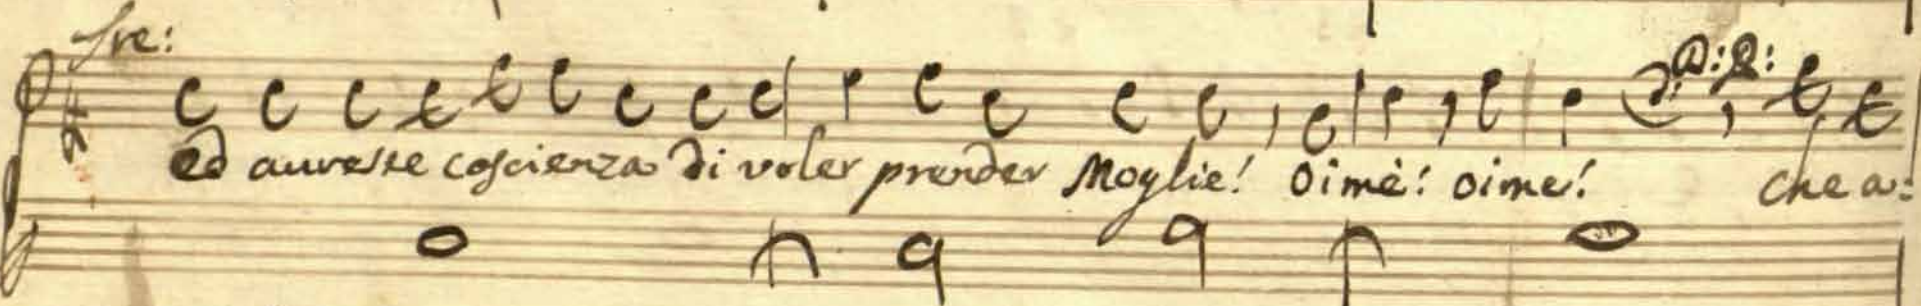 fre:
D: Q:
ed aureste coscienza di voler prender Moglie! Oimè! oime! che a: